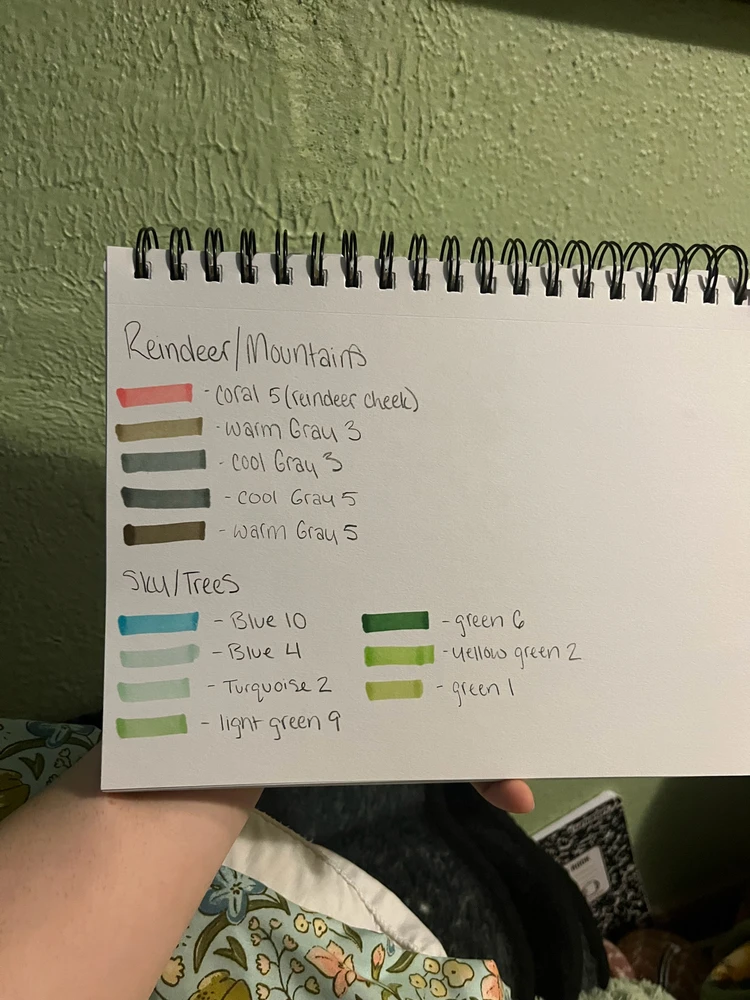 Reindeer/Mountains
- coral 5 (reindeer cheek)
- warm Gray 3
- cool Gray 3
- cool Gray 5
- warm Gray 5
Sky/Trees
- Blue 10
- Blue 4
- Turquoise 2
- light green 9
- green 6
- yellow green 2
- green 1